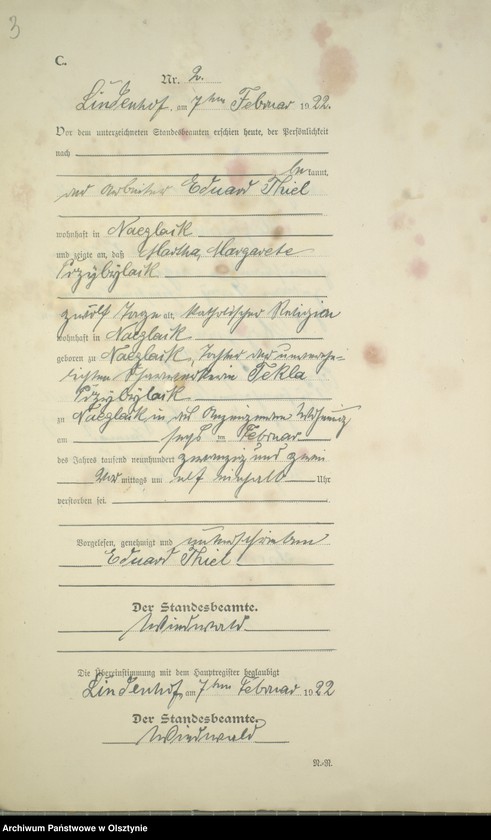 3
C.
Nr. 2.
Lindenhof, am 7ten Februar 1922.
Vor dem unterzeichneten Standesbeamten erschien heute, der Persönlichkeit
nach
bekannt,
der Arbeiter Eduard Thiel
wohnhaft in Naczlaik
und zeigte an, daß Martha Margarete
Przybylaik
zwölf Tage alt, katholischer Religion
wohnhaft in Naczlaik
geboren zu Naczlaik, Tochter der unverehe-
lichten Scharwerkerin Tekla
Przybylaik
zu Naczlaik in der Wohnung
am sechs ten Februar
des Jahres tausend neunhundert zwanzig und zwei
Vor mittags um elf einhalb Uhr
verstorben sei.
Vorgelesen, genehmigt und unterschrieben
Eduard Thiel
Der Standesbeamte.
Die Übereinstimmung mit dem Hauptregister beglaubigt
Lindenhof, am 7ten Februar 1922
Der Standesbeamte.
N.-R.
Archiwum Państwowe w Olsztynie